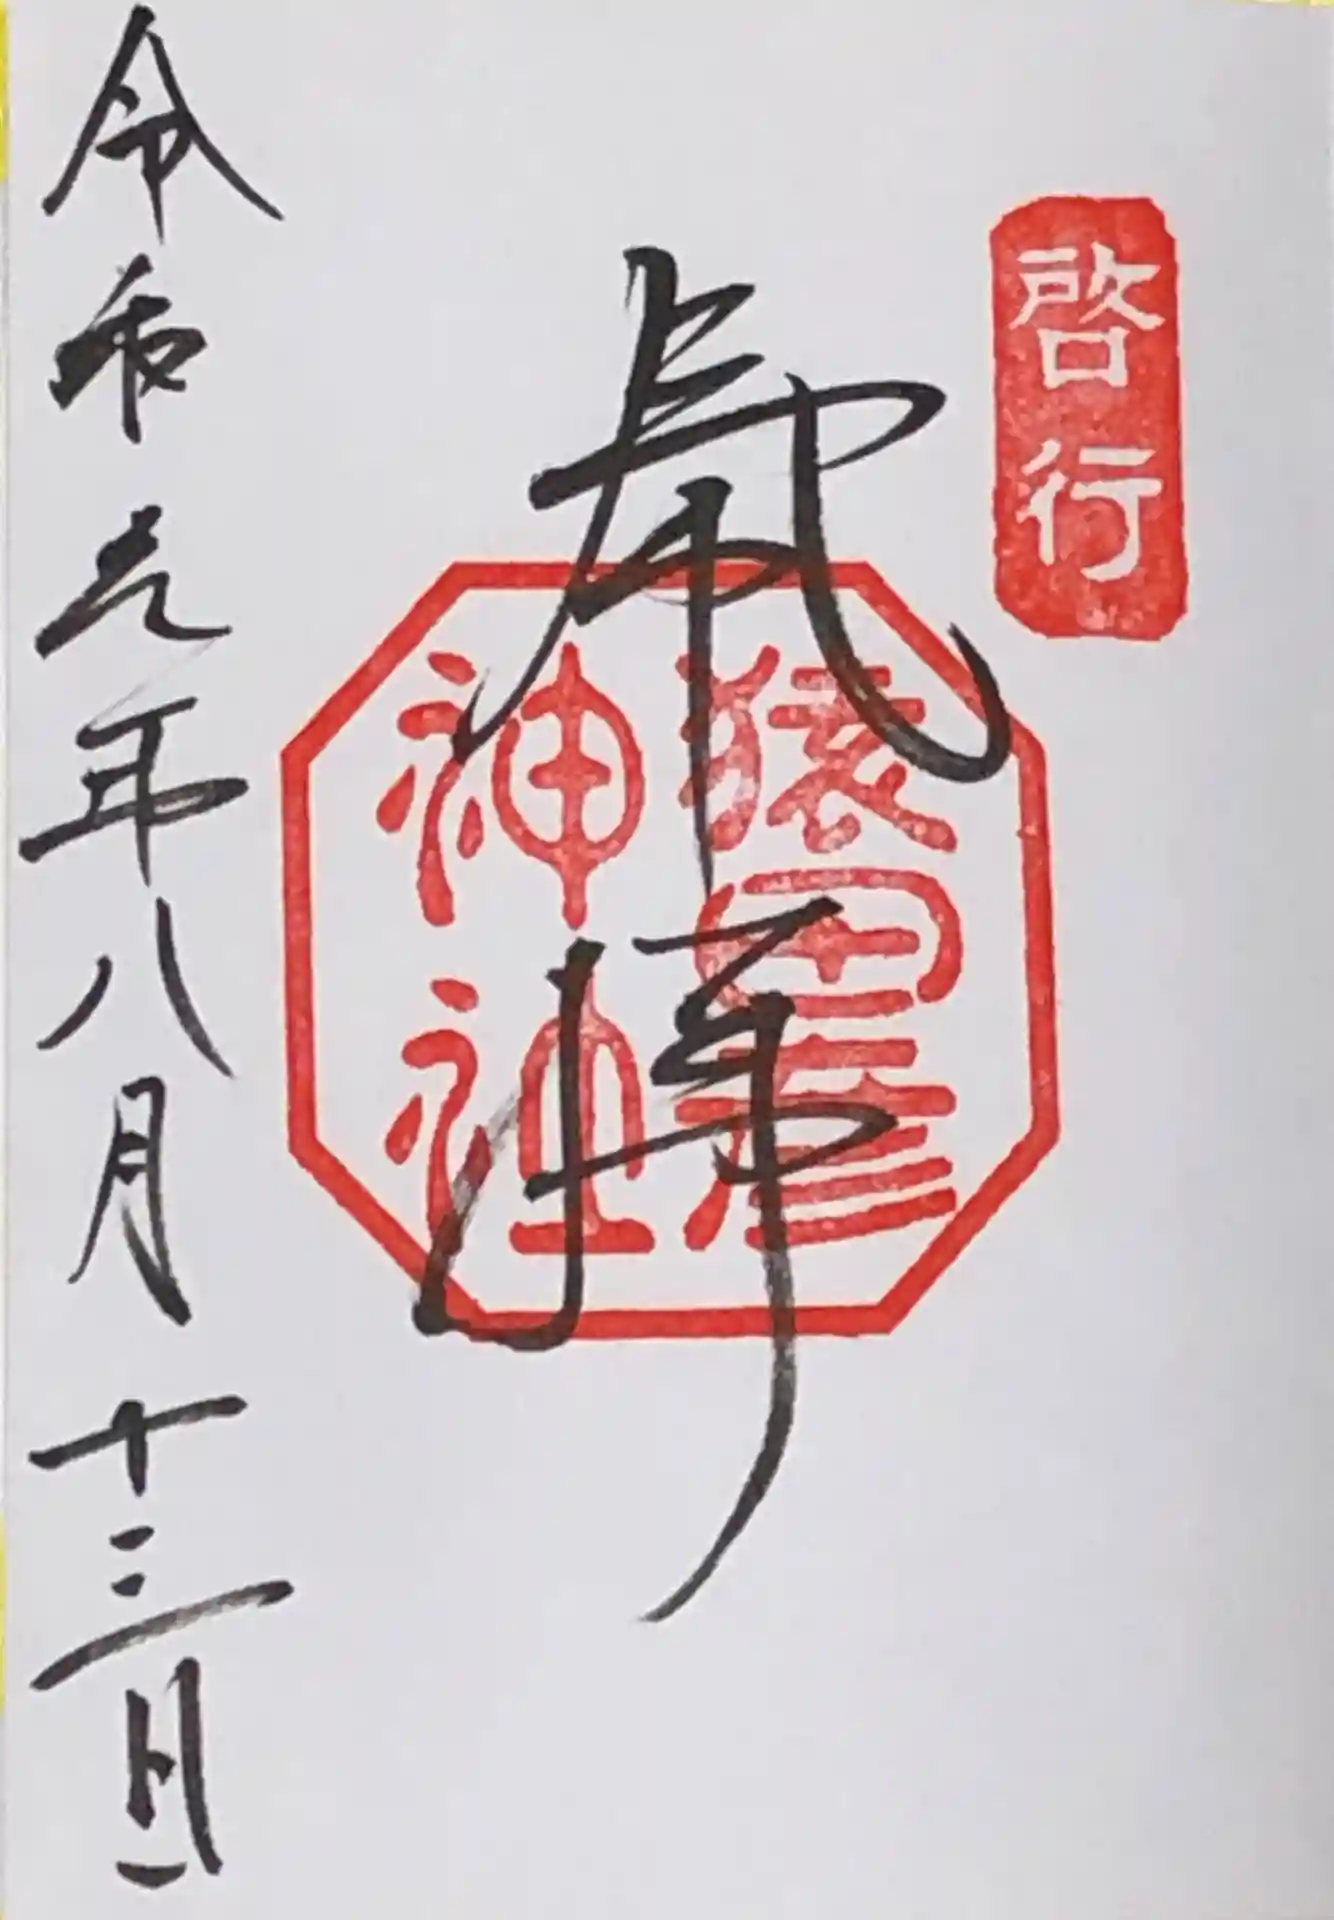 啓行
奉拝
猿田彦
神社
令和元年八月十三日